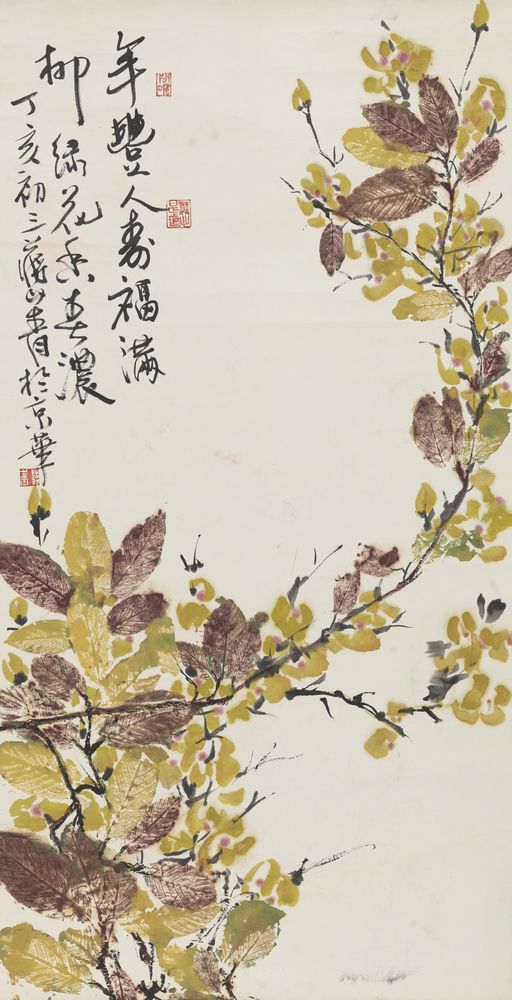 年豐人壽福滿
柳綠花香春濃
丁亥初三蔣山青於京華